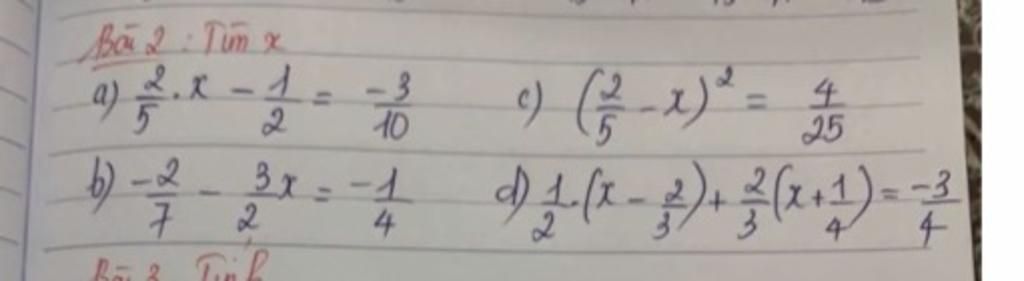 Bài 2 : Tìm x
a) 2/5 . x - 1/2 = -3/10 c) (2/5 - x)² = 4/25
b) -2/7 - 3/2 x = -1/4 d) 1/2 . (x - 2/3) + 2/3 (x + 1/4) = -3/4
Bài 3 Tính